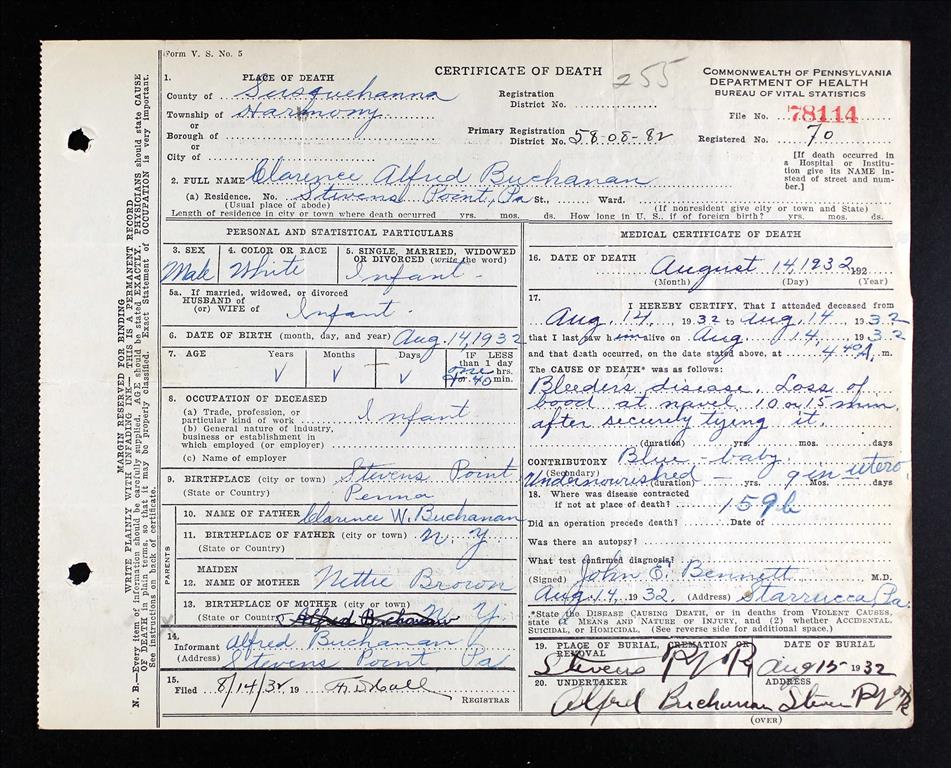 Form V. S. No. 5
CERTIFICATE OF DEATH
255
COMMONWEALTH OF PENNSYLVANIA
DEPARTMENT OF HEALTH
BUREAU OF VITAL STATISTICS
1. PLACE OF DEATH
County of Susquehanna
Township of Harmony
or
Borough of
or
City of
Registration
District No.
Primary Registration
District No. 58-08-82
File No. 78114
Registered No. 70
[If death occurred in
a Hospital or Institu-
tion give its NAME in-
stead of street and num-
ber.]
2. FULL NAME Clarence Alfred Buchanan
(a) Residence. No. Stevens Point, Pa St., Ward.
(Usual place of abode) (If nonresident give city or town and State)
Length of residence in city or town where death occurred yrs. mos. ds. How long in U. S., if of foreign birth? yrs. mos. ds.
PERSONAL AND STATISTICAL PARTICULARS
3. SEX
Male
4. COLOR OR RACE
White
5. SINGLE, MARRIED, WIDOWED
OR DIVORCED (write the word)
Infant
5a. If married, widowed, or divorced
HUSBAND of
(or) WIFE of Infant
6. DATE OF BIRTH (month, day, and year) Aug. 14, 1932
7. AGE Years Months Days IF LESS
than 1 day
one hrs.
or 40 min.
8. OCCUPATION OF DECEASED
(a) Trade, profession, or
particular kind of work Infant
(b) General nature of industry,
business or establishment in
which employed (or employer)
(c) Name of employer
9. BIRTHPLACE (city or town) Stevens Point
(State or Country) Penna
PARENTS
10. NAME OF FATHER Clarence W. Buchanan
11. BIRTHPLACE OF FATHER (city or town) N. Y.
(State or Country)
MAIDEN
12. NAME OF MOTHER Nettie Brown
13. BIRTHPLACE OF MOTHER (city or town) N. Y.
(State or Country) Alfred Buchanan
14.
Informant Alfred Buchanan
(Address) Stevens Point Pa
15.
Filed 8/14/32 19
REGISTRAR
MEDICAL CERTIFICATE OF DEATH
16. DATE OF DEATH
August 14, 1932 192
(Month) (Day) (Year)
17.
I HEREBY CERTIFY, That I attended deceased from
Aug. 14, 1932 to Aug. 14 1932
that I last saw him alive on Aug. 14, 1932
and that death occurred, on the date stated above, at 4 40 A. m.
The CAUSE OF DEATH* was as follows:
Bleeders disease. Loss of
bood at navel 10 or 15 min.
after securely tying it.
(duration) yrs. mos. days
CONTRIBUTORY Blue-baby
(Secondary)
Undernourished — g in utero
(duration) yrs. Mos. days
18. Where was disease contracted
if not at place of death? 159b
Did an operation precede death? Date of
Was there an autopsy?
What test confirmed diagnosis?
(Signed) John E. Bennett M.D.
Aug. 14, 1932. (Address) Starrucca, Pa.
*State the DISEASE CAUSING DEATH, or in deaths from VIOLENT CAUSES,
state (1) MEANS AND NATURE OF INJURY, and (2) whether ACCIDENTAL,
SUICIDAL, or HOMICIDAL. (See reverse side for additional space.)
19. PLACE OF BURIAL, CREMATION OR
REMOVAL
Stevens
DATE OF BURIAL
Aug 15 1932
20. UNDERTAKER
Alfred Buchanan
ADDRESS
Steven
(OVER)
MARGIN RESERVED FOR BINDING
WRITE PLAINLY WITH UNFADING INK—THIS IS A PERMANENT RECORD
N. B.—Every item of information should be carefully supplied. AGE should be stated EXACTLY. PHYSICIANS should state CAUSE
OF DEATH in plain terms, so that it may be properly classified. Exact Statement of OCCUPATION is very important.
See instructions on back of certificate.